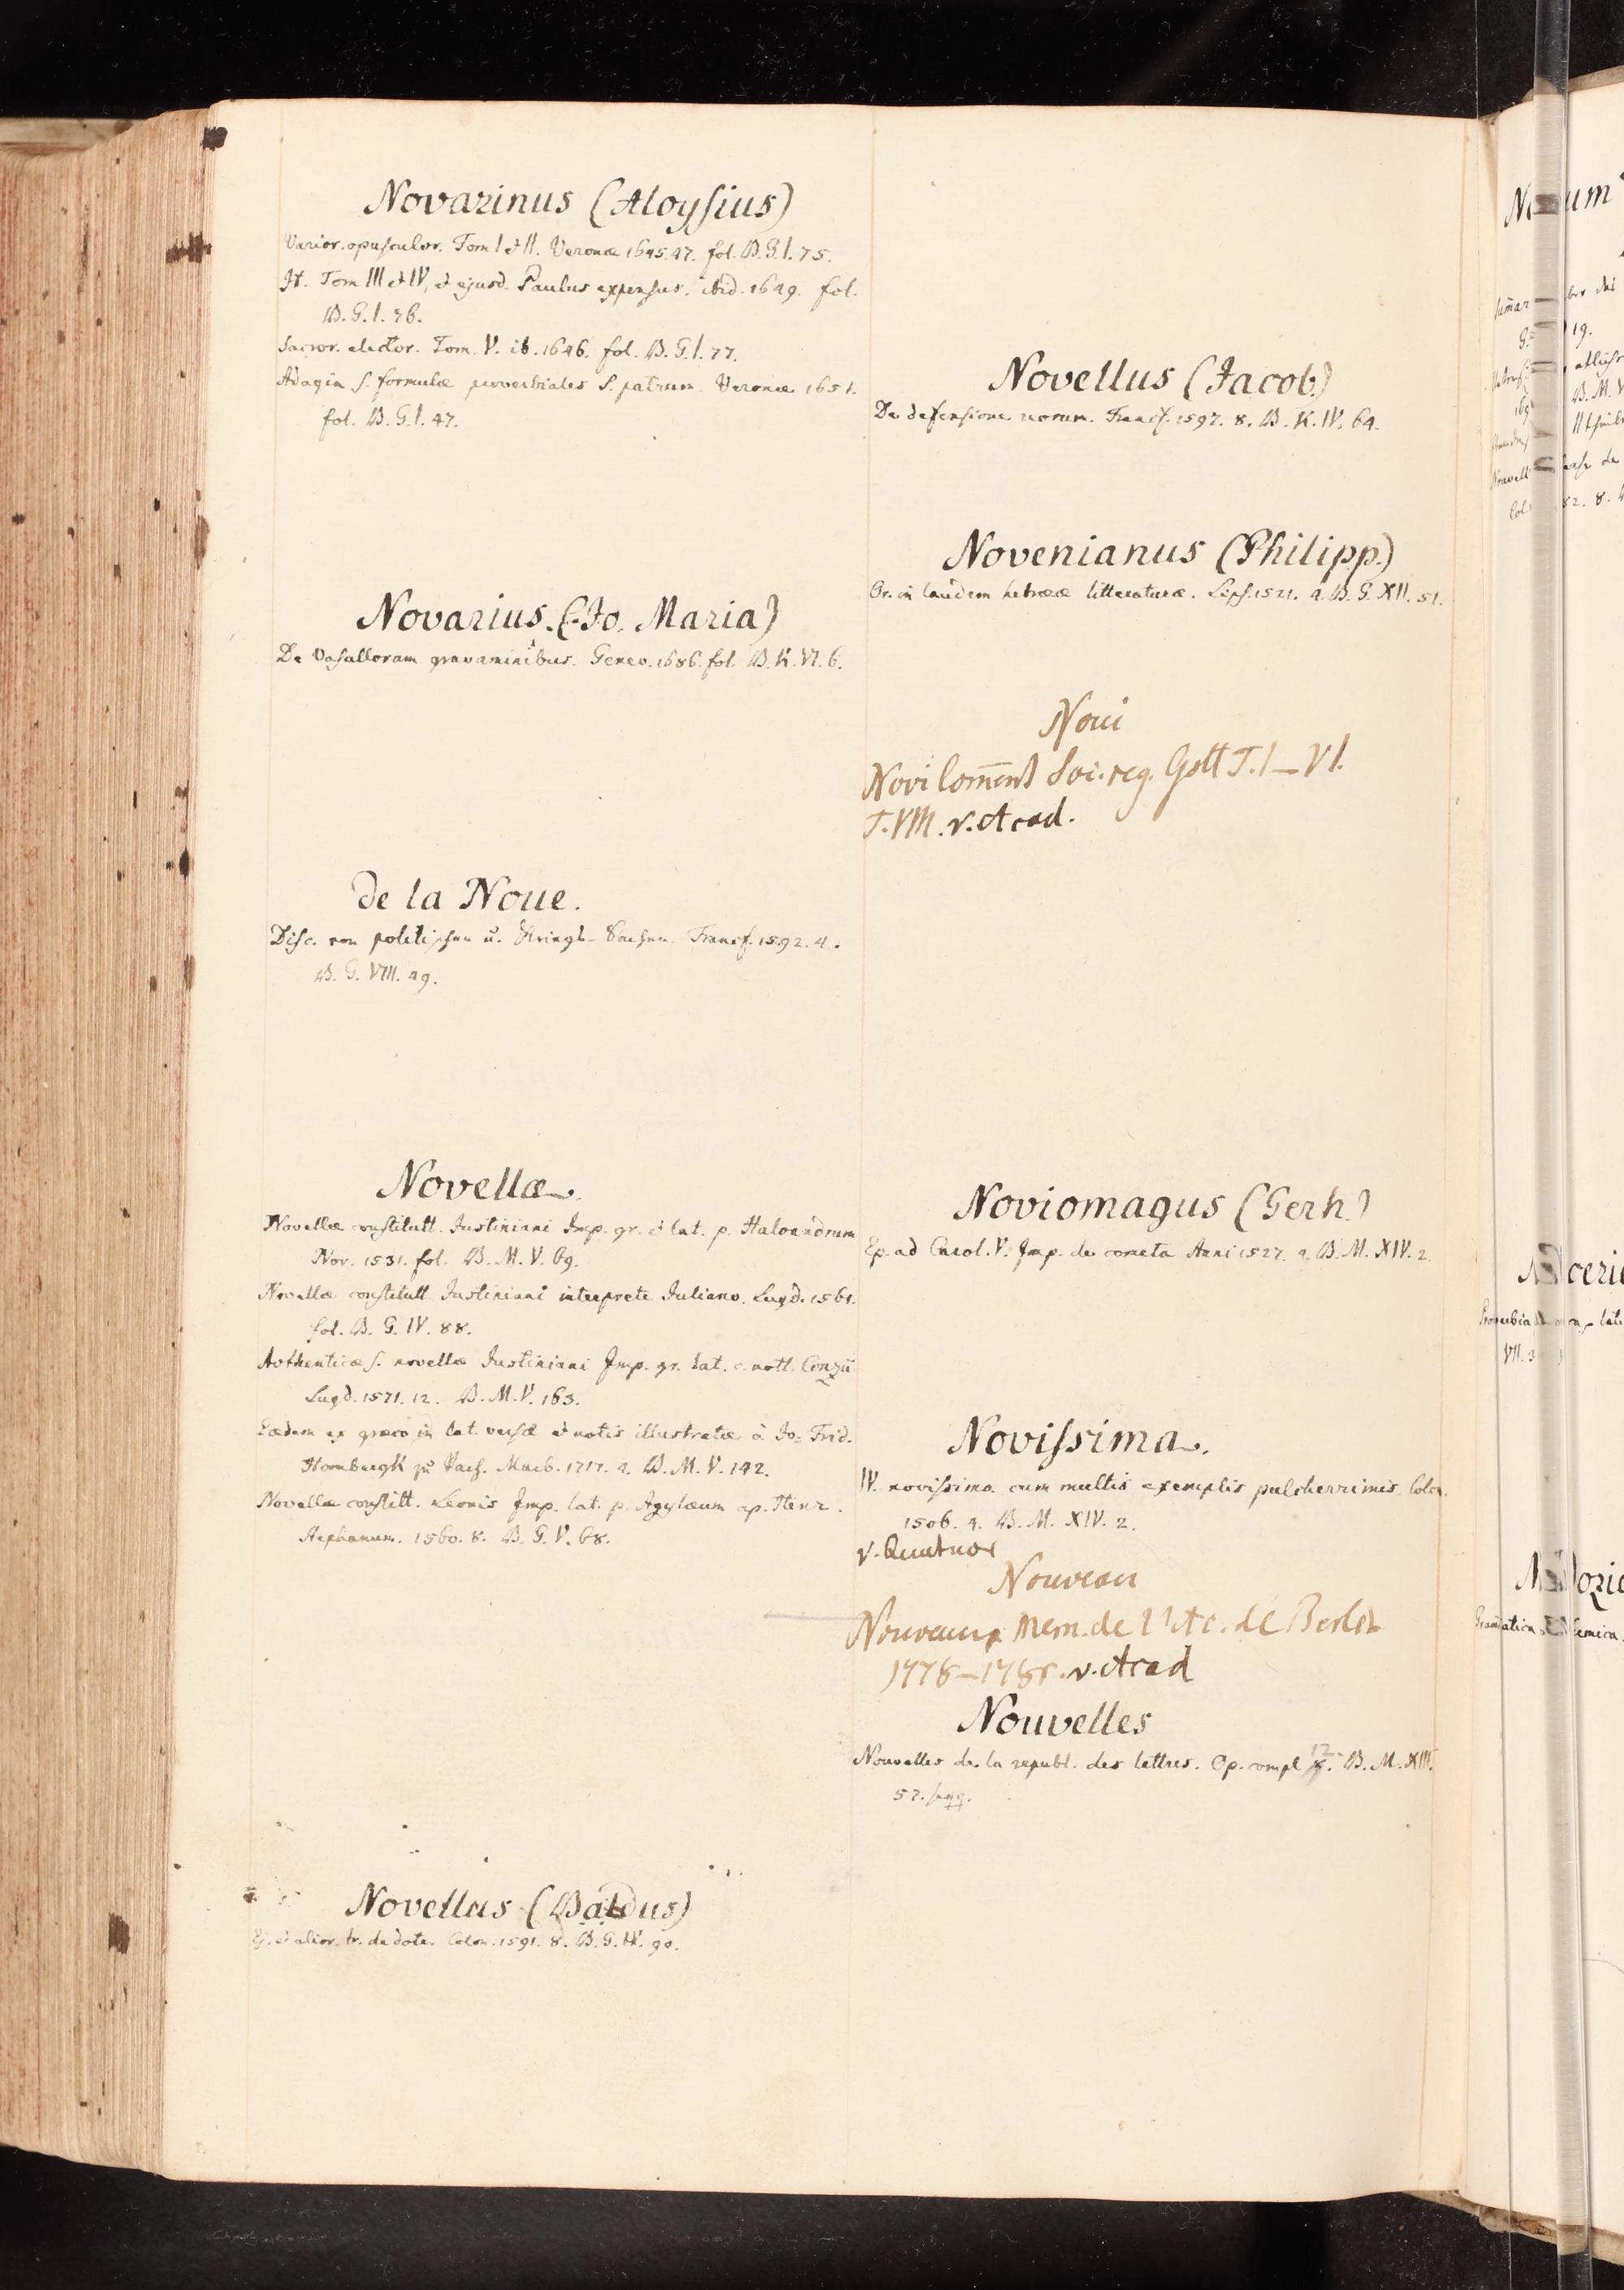 Novarinus (Aloysius)
Varior. opusculor. Tom I et II. Veronæ 1645.47. fol. B. G. I. 75.
It. Tom III et IV, et ejusd. Paulus expensus. ibid. 1649. fol.
B. G. I. 76.
Sacror. elector. Tom. V. ib. 1646. fol. B. G. I. 77.
Adagia s. formulæ proverbiales S. patrum. Veronæ 1651.
fol. B. G. I. 47.
Novarius. (Jo. Maria)
De Vasallorum gravaminibus. Genev. 1686. fol. B. K. VI. 6.
de la Noue.
Disc. von politischen u. Kriegs-Sachen. Francf. 1592. 4.
B. G. VIII. 49.
Novellæ.
Novellæ constitutt. Justiniani Imp. gr. et lat. p. Haloandrum
Nor. 1531. fol. B. M. V. 69.
Novellæ constitutt. Justiniani interprete Juliano. Lugd. 1561.
fol. B. G. IV. 88.
Authenticæ s. novellæ Justiniani Imp. gr. lat. c. nott. Conzii
Lugd. 1571. 12. B. M. V. 163.
Eædem ex græco in lat. versæ et notis illustratæ à Jo. Frid.
Hombergk zu Vach. Marb. 1717. 4. B. M. V. 142.
Novellæ constitt. Leonis Imp. lat. p. Agylæum ap. Henr.
Stephanum. 1560. 8. B. G. V. 68.
Novellus (Baldus)
Ej. et alior. tr. de dote. Colon. 1591. 8. B. G. IV. 90.
Novellus (Jacob.)
De defensione reorum. Francf. 1597. 8. B. K. IV. 64.
Novenianus (Philipp.)
Or. in laudem hebrææ litteraturæ. Lips. 1521. 4. B. G. XII. 51.
Noui
Novi Com̄ent Soc. reg. Gott T. I – VI.
T. VIII. v. Acad.
Noviomagus (Gerh.)
Ep. ad Carol. V. Imp. de cometa Anni 1527. 4. B. M. XIV. 2.
Novissima.
IV. novissima cum multis exemplis pulcherrimis. Colon.
1506. 4. B. M. XIV. 2.
v. Quatuor
Nouveau
Nouveaux Mem. de l'Ac. de Berlin
v. Acad
Nouvelles
Nouvelles de la republ. des lettres. Op. compl 12. B. M. XIII.
52. sqq.